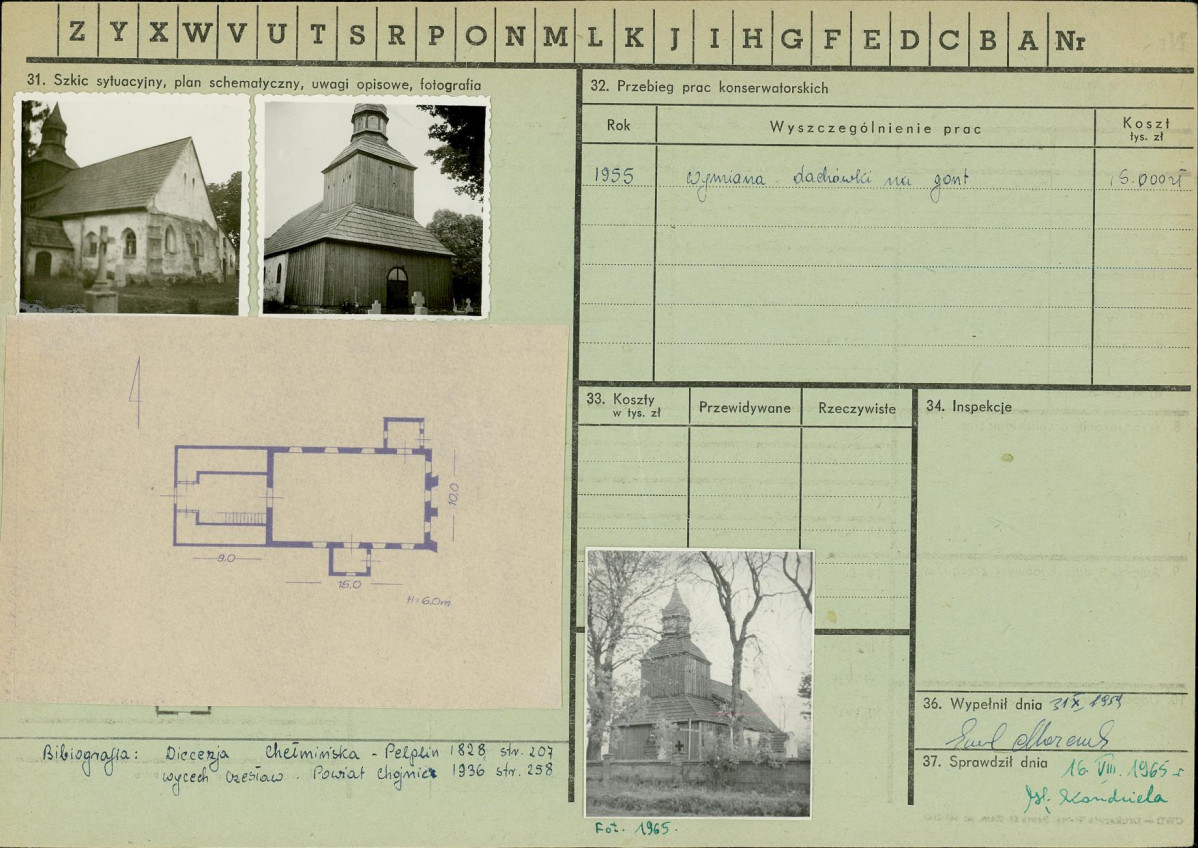 Z Y X W V U T S R P O N M L K J I H G F E D C B A Nr
31. Szkic sytuacyjny, plan schematyczny, uwagi opisowe, fotografia
9.0
15,0
10,0
H=6.0m
Bibiografia: Diecezja Chełmińska - Pelplin 1828 str. 207
Wycech Czesław. Powiat Chojnice 1936 str. 258
32. Przebieg prac konserwatorskich
Rok
Wyszczególnienie prac
Koszt
tys. zł
1955
wymiana dachówki na gont
33. Koszty
w tys. zł
Przewidywane
Rzeczywiste
34. Inspekcje
Fot. 1965.
36. Wypełnił dnia
37. Sprawdził dnia
16. VIII. 1965 r
Kondziela